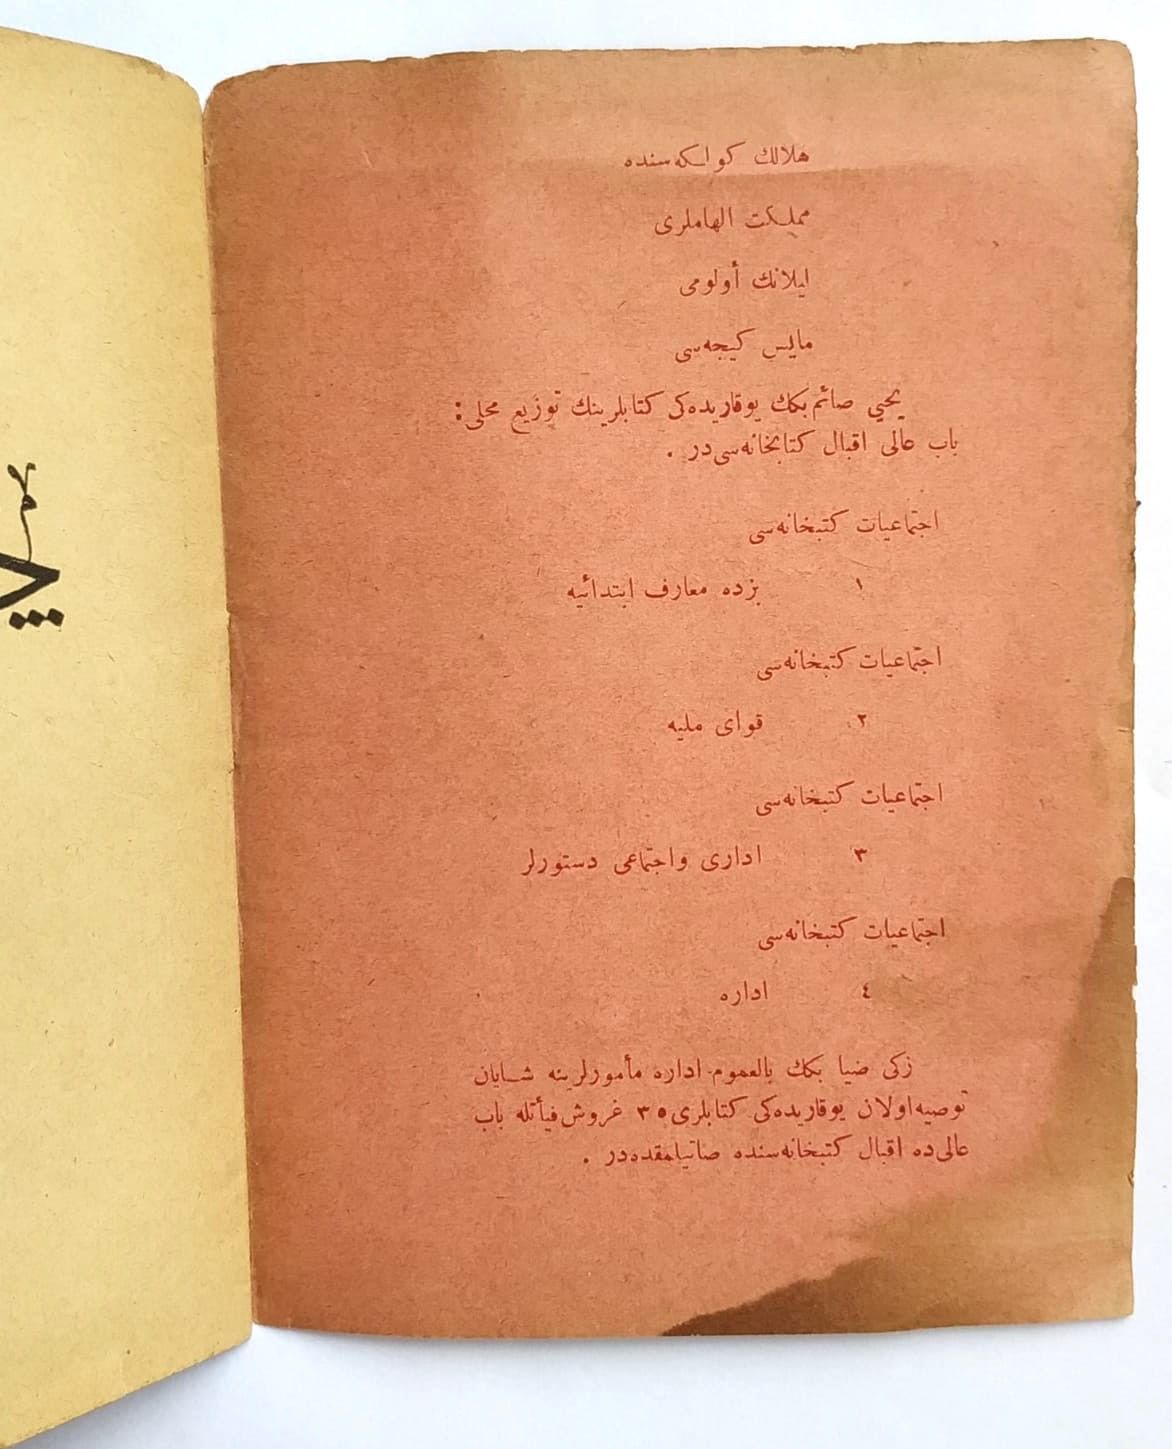 هلالك كولكه‌سنده
مملكت الهاملری
ایلانك أولومی
مایس كیجه‌سی
یحیی صائم بكك یوقاریده‌كی كتابلرینك توزیع محلی :
باب عالی اقبال كتابخانه‌سی‌در .
اجتماعیات كتبخانه‌سی
١ بزده معارف ابتدائیه
اجتماعیات كتبخانه‌سی
٢ قوای ملیه
اجتماعیات كتبخانه‌سی
٣ اداری واجتماعی دستورلر
اجتماعیات كتبخانه‌سی
٤ اداره
زكی ضیا بكك بالعموم اداره مأمورلرینه شایان
توصیه اولان یوقاریده‌كی كتابلری ٣٥ غروش فیأتله باب
عالی‌ده اقبال كتبخانه‌سنده صاتیلمقده‌در .